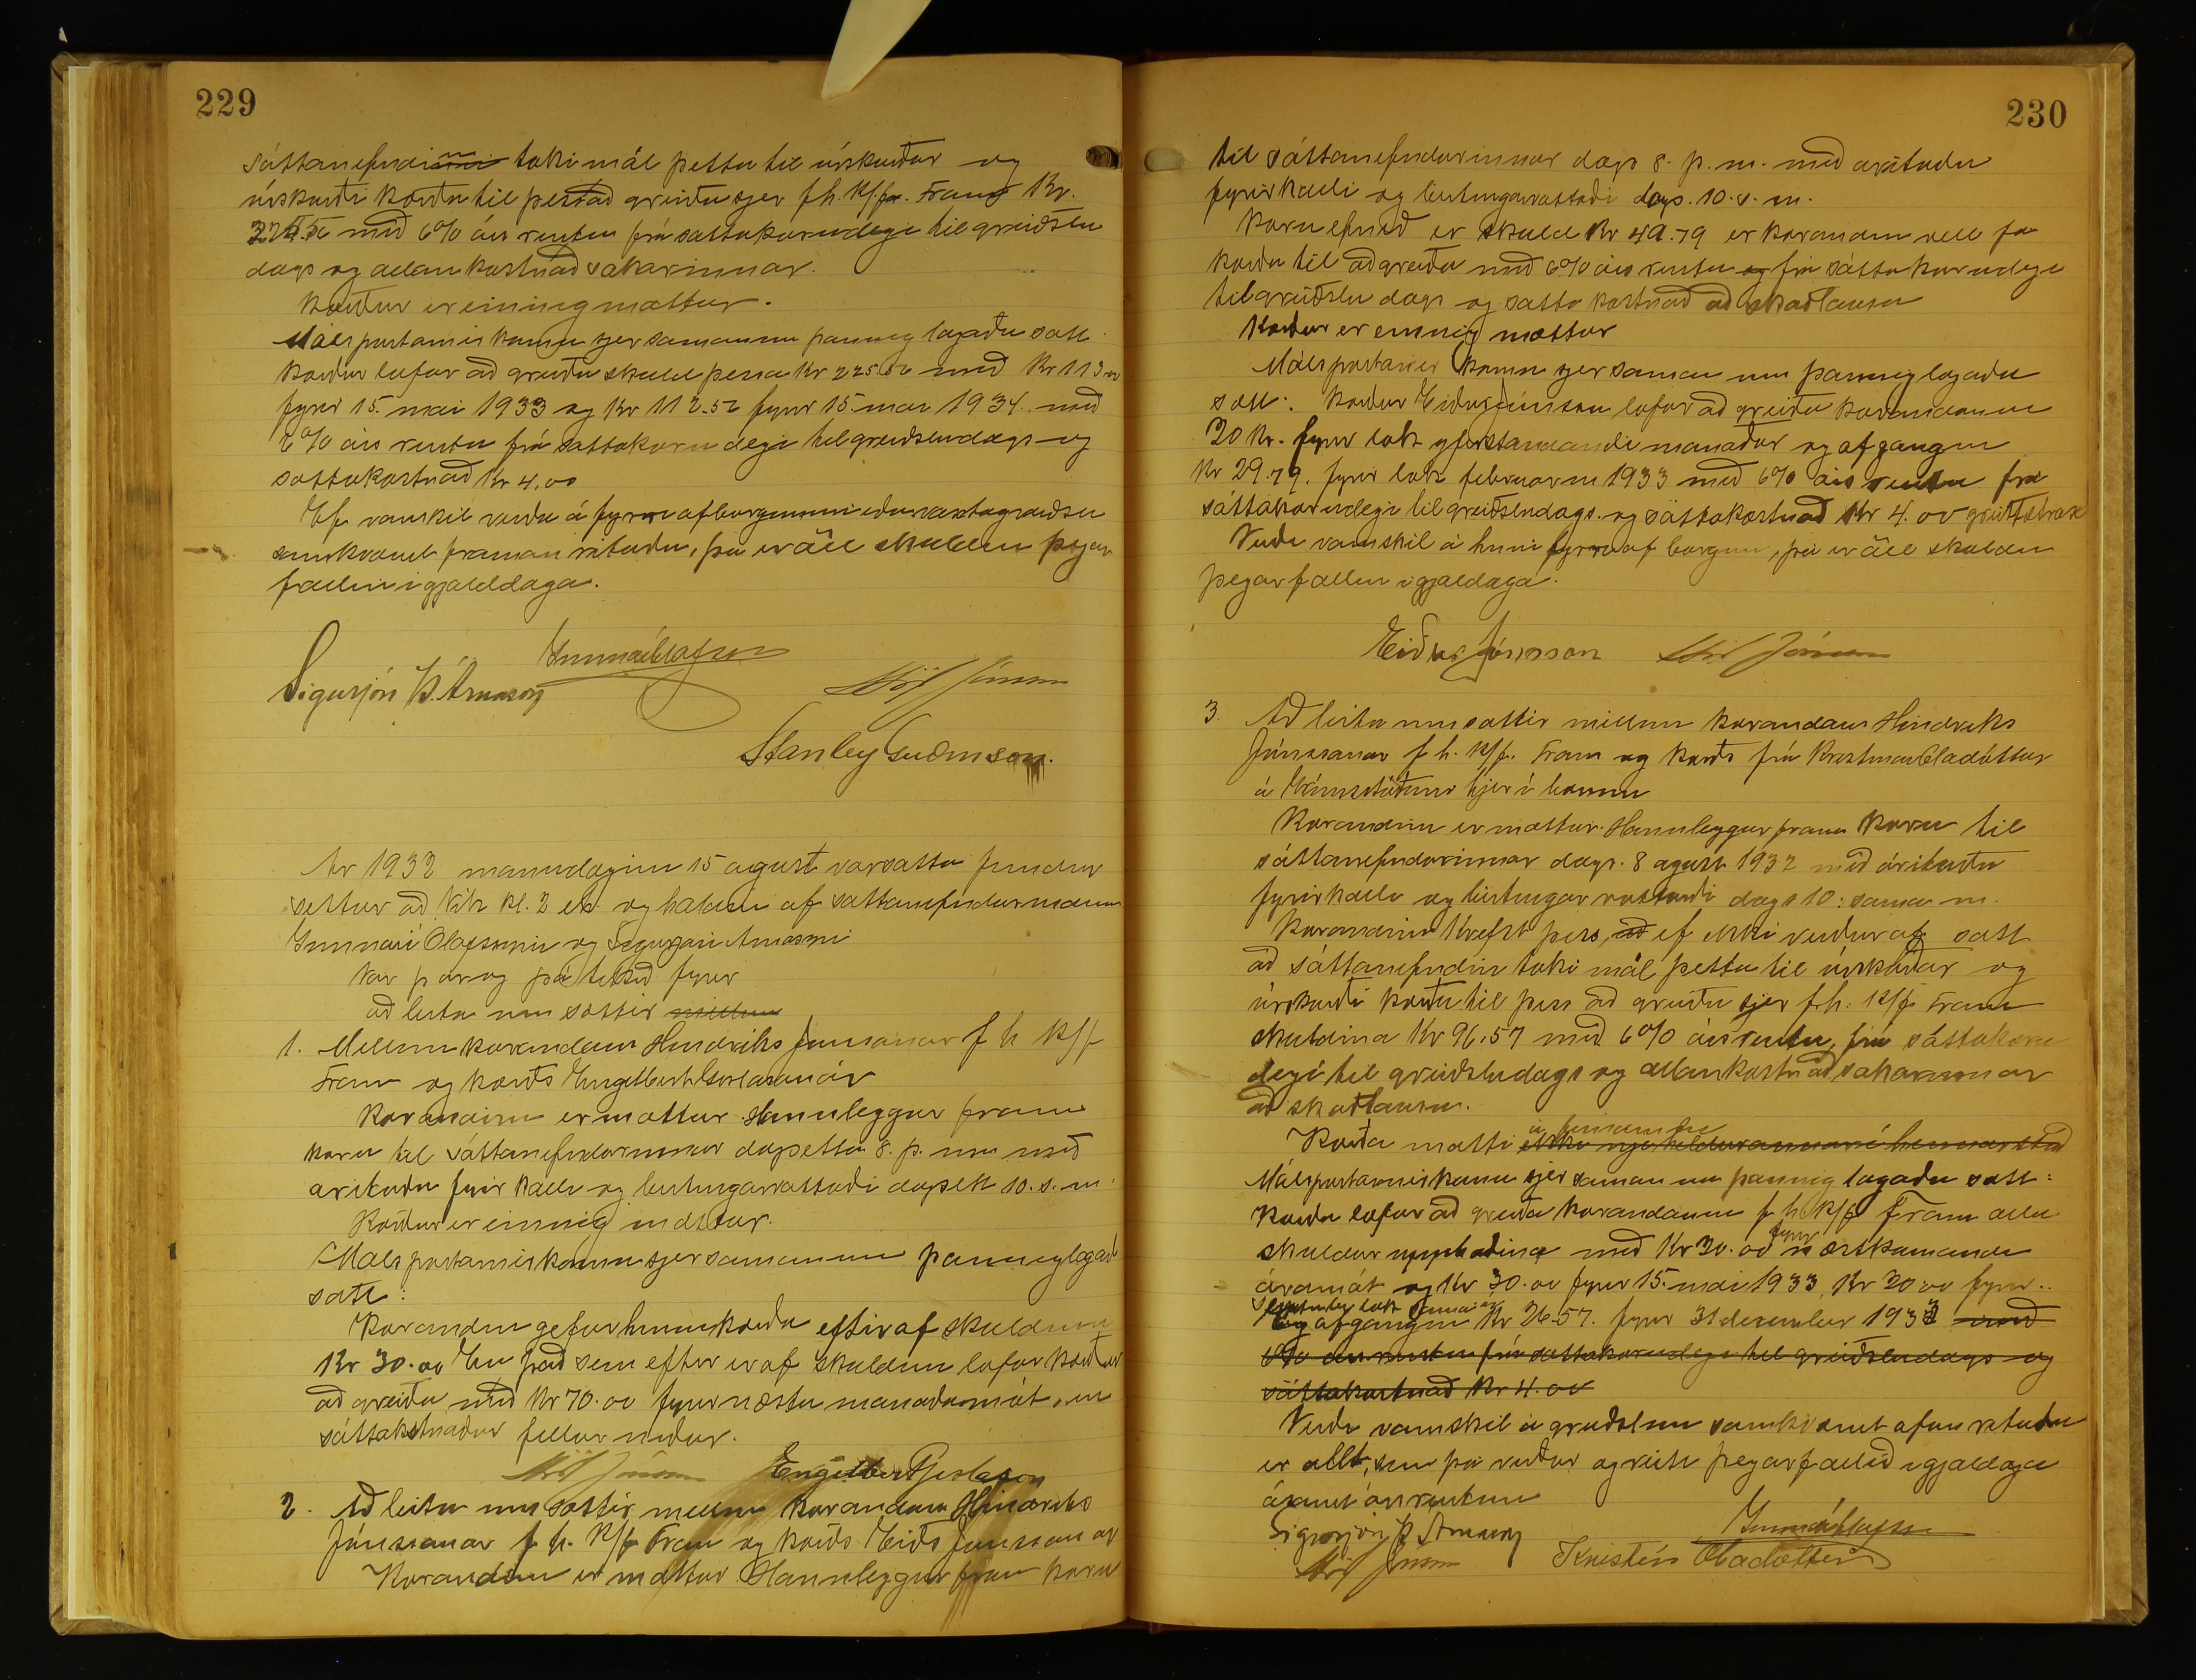 229
sáttanefndinni taki mál þetta til úrskurðar og
úrskurði kærða til þess að greiða sjer f.h. K/f. Fram Kr.
225.52 með 6% árs rentu frá sáttakærudegi til greiðslu
dags og allan kostnað sakarinnar.
Kærður er einnig mættur.
Málspartarnir komu sjer saman um þannig lagaða sátt
kærður lofar að greiða skuld þessa Kr 225.52 með Kr 113.00
fyrir 15. mai 1933 og Kr 112.52 fyrir 15. mai 1934 með
6% árs rentu frá sáttakærudegi til greiðsludags og
sáttakostnað Kr 4.00
Ef vanskil verða á fyrri afborguninni eða vaxtagreiðslu
samkvæmt framanrituðu, þá er öll skuldin þegar
fallin í gjalddaga.
Gunnar Ólafsson
Sigurjón Þ. Árnason
Stanley Guðmson.
Ár 1932 mánudaginn 15 ágúst var sátta fundur
settur að Vík kl. 2 eh. og haldin af sáttanefndarmönnum
Gunnari Ólafssyni og Sigurjóni Árnasyni
Var þar og þá tekið fyrir
að leita um sættir millum
1. Millum kærandans Hindriks Jónssonar f h K/f
Fram og kærðs Engilberts Gíslasonar
Kærandinn er mættur. Hann leggur fram
kæru til sáttanefndarinnar dagsetta 8. þ. m. með
árituðu fyrirkalli og birtingarvottorði dagsett 10. s. m.
Kærður er einnig mættur.
Málspartarnir komu sjer saman um þannig lagaða
sátt:
Kærandinn gefur hinum kærða eftir af skuldinni
Kr 30.00 En það sem eftir er af skuldinni lofar kærður
að greiða með Kr 70.00 fyrir næstu mánaðamót, en
sáttakostnaður fellur niður.
Engilbert Gíslason
2. Að leita um sættir millum kærandans Hindriks
Jónssonar f h. K/f Fram og kærðs Eiðs Jónssonar
Kærandinn er mættur. Hann leggur fram kæru
230
til sáttanefndarinnar dags 8. þ. m. með árituðu
fyrirkalli og birtingarvottorði dags. 10. s. m.
Kæruefnið er skuld Kr 49.79 er kærandinn vill fá
kærða til að greiða með 6% árs rentu og frá sáttakærudegi
til greiðslu dags og sátta kostnað að skaðlausu
Kærður er einnig mættur
Málspartarnir komu sjer saman um þannig lagaða
sátt: Kærður Eiður Jónsson lofar að greiða kærandanum
20 Kr. fyrir lok yfirstandandi mánaðar og afganginn
Kr 29.79. fyrir lok februarm 1933 með 6% árs rentu frá
sáttakærudegi til greiðsludags. og sáttakostnað Kr 4.00 greitt strax
Verði vanskil á hinni fyrri afborgun, þá er öll skuldin
þegar fallin í gjalddaga.
Eiður Jónsson
3. Að leita um sættir millum kærandans Hindriks
Jónssonar f h. K/f. Fram og kærðs frú Kristínar Óladóttur
á hjer í bænum
Kærandinn er mættur. Hann leggur fram kæru til
sáttanefndarinnar dags. 8 ágúst 1932 með árituðu
fyrirkalli og birtingarvottorði dags 10: sama m.
Kærandinn krefst þess, að ef ekki verður af sátt
að sáttanefndin taki mál þetta til úrskurðar og
úrskurði kærðu til þess að greiða sjer f.h. K/f Fram
skuldina Kr 96.57 með 6% árs rentu, frá sáttakæru
degi til greiðsludags og allan kostnað sakarinnar
að skaðlausu.
Kærða mætti á fundinum ekki nje heldur annar í hennar stað
Málspartarnir komu sjer saman um þannig lagaða sátt:
Kærða lofar að greiða kærandanum f h K/f Fram alla
skuldar upphæðina með Kr 20.00 fyrir næstkomandi
áramót og Kr 30.00 fyrir 15. mai 1933, Kr 20.00 fyrir
september lok sama ár
Og afganginn Kr 26.57. fyrir 31 december 1933 með
6% árs rentu frá sáttakærudegi til greiðsludags og
sáttakostnað Kr 4.00
Verði vanskil á greiðslum samkvæmt ofanrituðu
er allt, sem þá verður ógreitt þegar fallið í gjalddaga
ásamt ársrentum
Gunnar Ólafsson
Sigurjón Þ. Árnason
Kristín Óladóttir